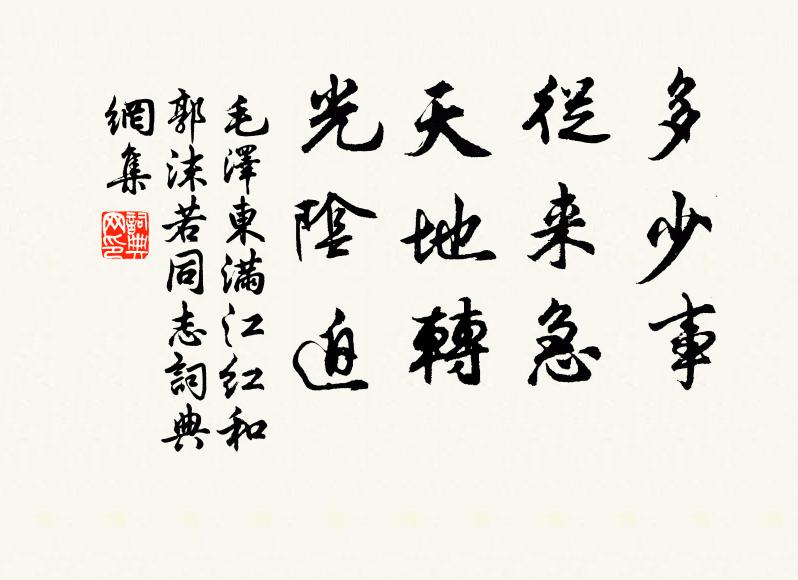 多少事
從来急
天地轉
光陰迫
毛澤東满江红和
郭沫若同志詞典
網集
詞典
网印